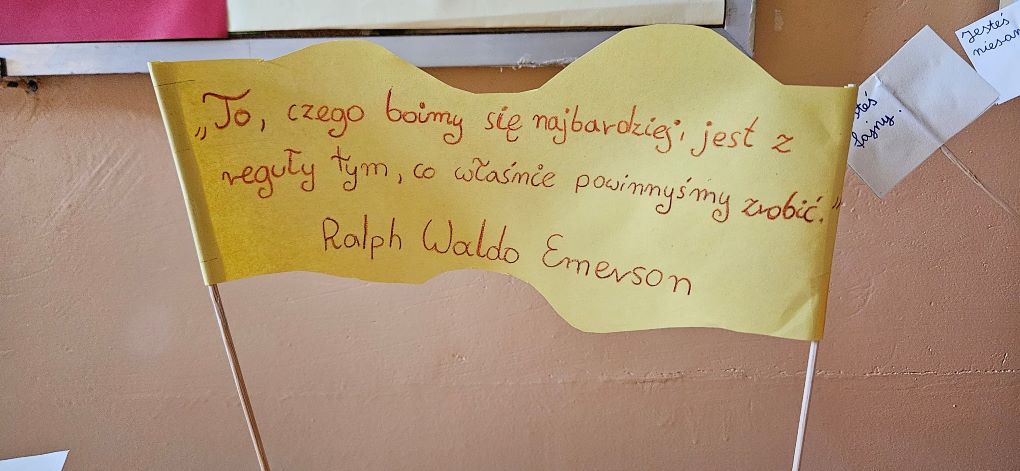 „To, czego boimy się najbardziej, jest z
reguły tym, co właśnie powinnyśmy zrobić."
Ralph Waldo Emerson
Jesteś
fajny!